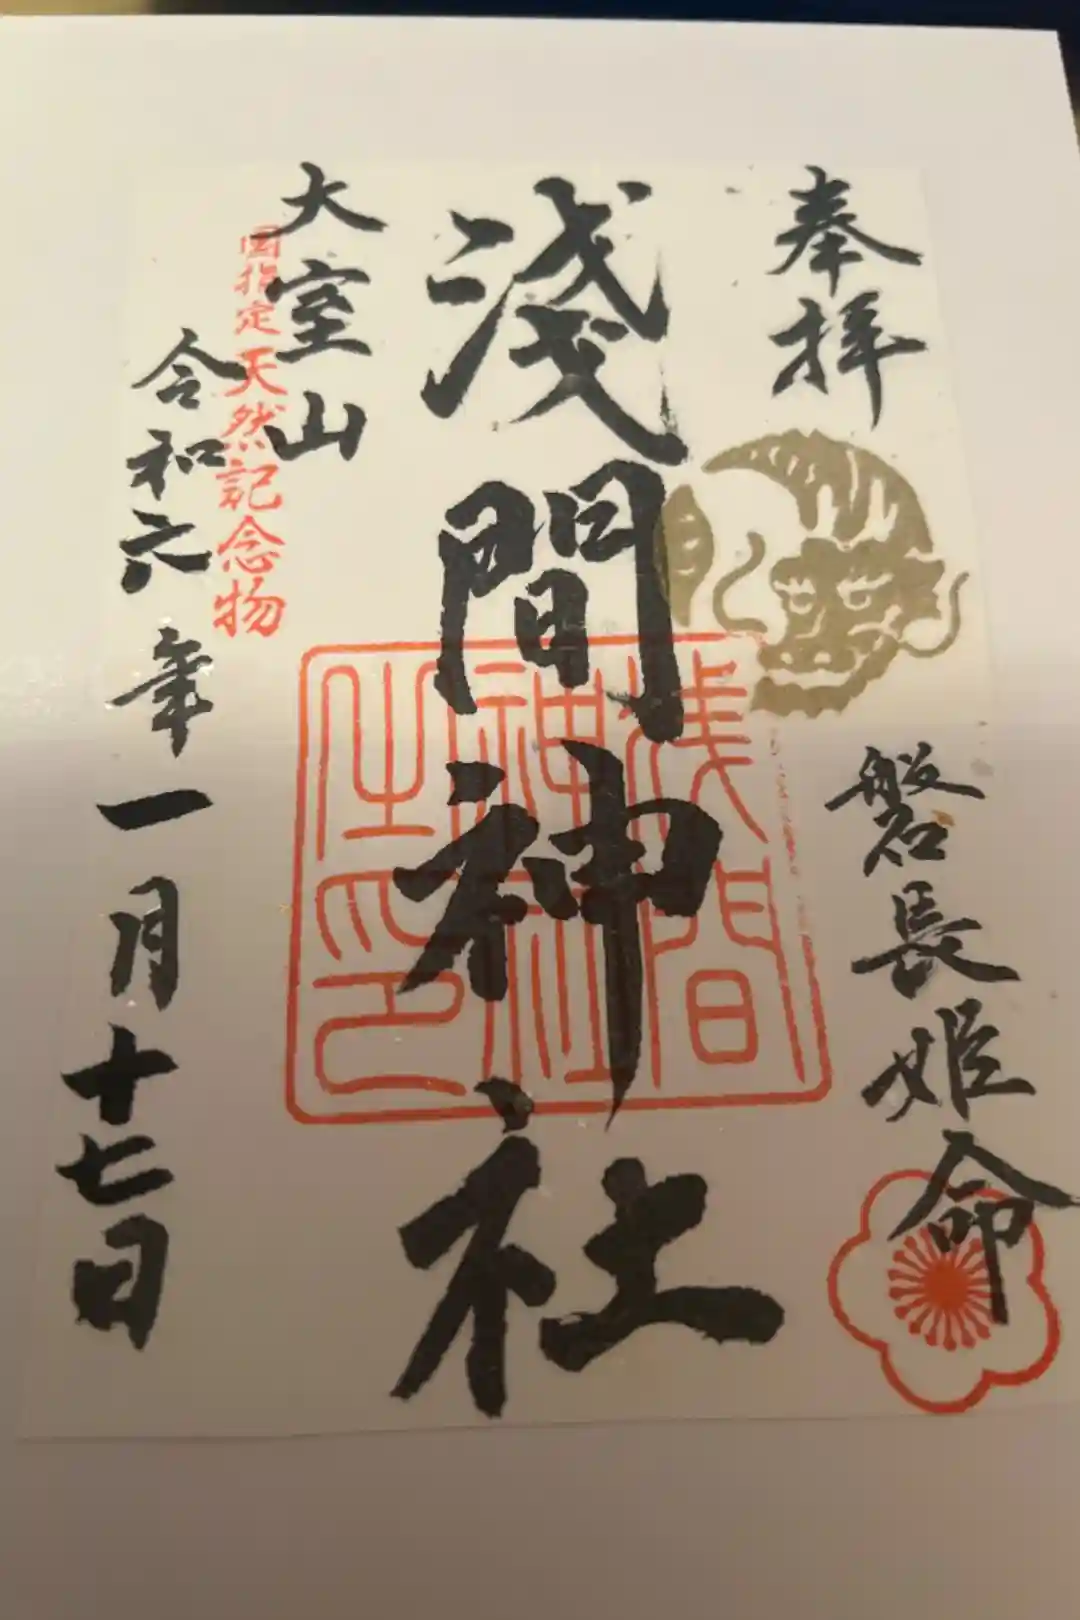 奉拝
磐長姫命
淺間神社
浅間
神社
之印
大室山
国指定天然記念物
令和六年一月十七日